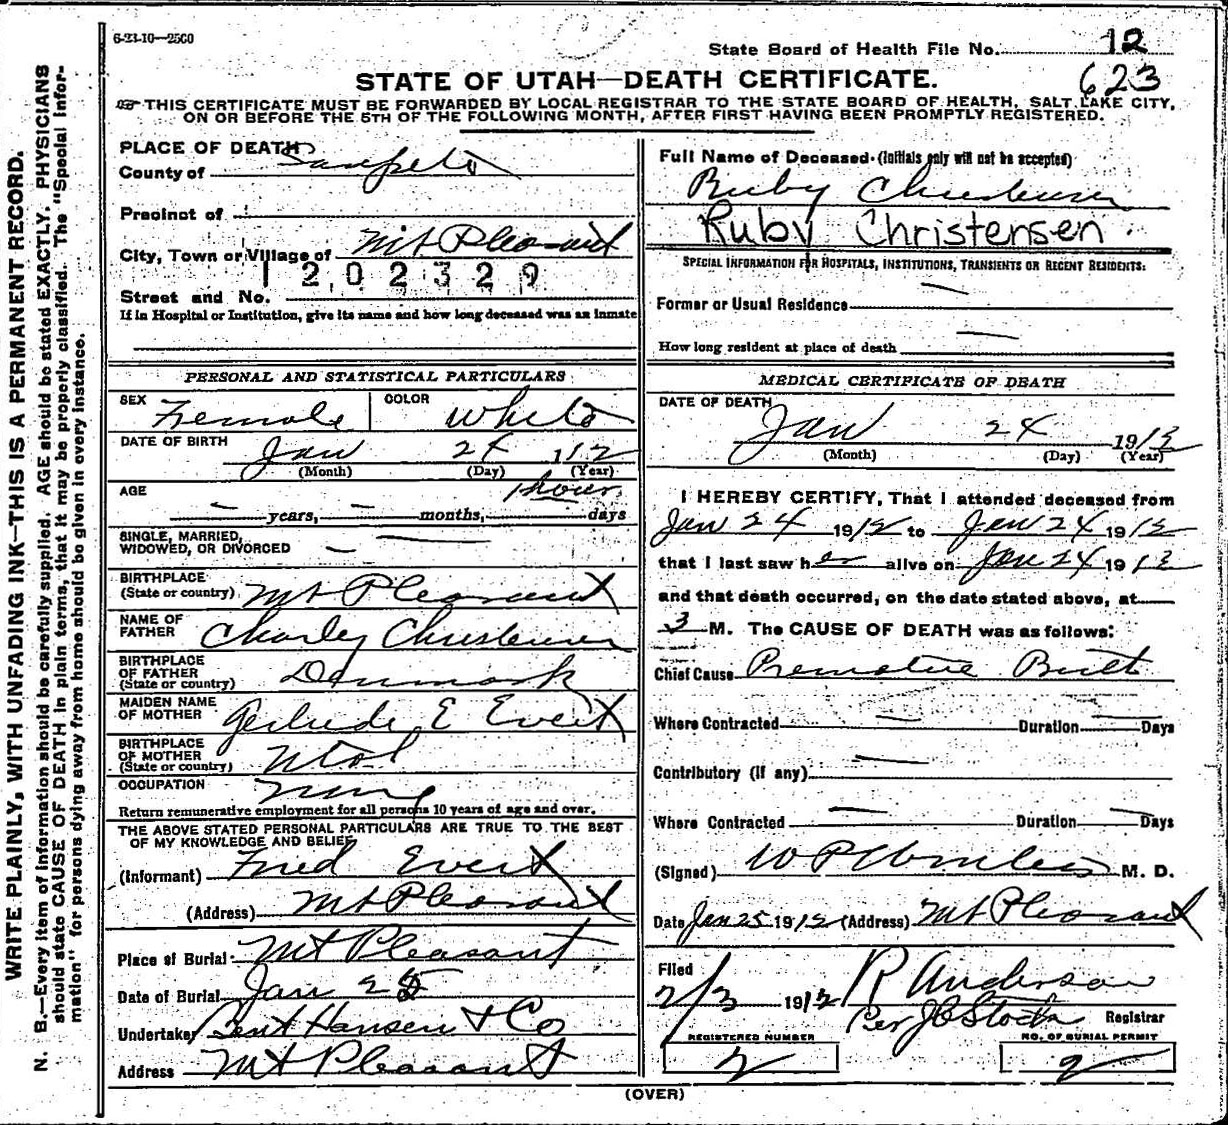 6-23-10—2500
State Board of Health File No. 12
623
STATE OF UTAH—DEATH CERTIFICATE.
THIS CERTIFICATE MUST BE FORWARDED BY LOCAL REGISTRAR TO THE STATE BOARD OF HEALTH, SALT LAKE CITY,
ON OR BEFORE THE 5TH OF THE FOLLOWING MONTH, AFTER FIRST HAVING BEEN PROMPTLY REGISTERED.
WRITE PLAINLY, WITH UNFADING INK—THIS IS A PERMANENT RECORD.
N. B.—Every item of information should be carefully supplied. AGE should be stated EXACTLY. PHYSICIANS
should state CAUSE OF DEATH in plain terms, that it may be properly classified. The "Special Infor-
mation" for persons dying away from home should be given in every instance.
PLACE OF DEATH
County of Sanpete
Precinct of
City, Town or Village of Mt Pleasant
1202329
Street and No.
If in Hospital or Institution, give its name and how long deceased was an inmate
PERSONAL AND STATISTICAL PARTICULARS
SEX Female COLOR White
DATE OF BIRTH Jan 24 1912
(Month) (Day) (Year)
AGE 1 hour
— years, — months, days
SINGLE, MARRIED,
WIDOWED, OR DIVORCED —
BIRTHPLACE
(State or country) Mt Pleasant
NAME OF
FATHER Charley Christensen
BIRTHPLACE
OF FATHER
(State or country) Denmark
MAIDEN NAME
OF MOTHER Gertrude E Evert
BIRTHPLACE
OF MOTHER
(State or country) Utah
OCCUPATION None
Return remunerative employment for all persons 10 years of age and over.
THE ABOVE STATED PERSONAL PARTICULARS ARE TRUE TO THE BEST
OF MY KNOWLEDGE AND BELIEF
(Informant) Fred Evert
(Address) Mt Pleasant
Place of Burial Mt Pleasant
Date of Burial Jan 25
Undertaker Bent Hansen & Co
Address Mt Pleasant
Full Name of Deceased (Initials only will not be accepted)
Ruby Christensen
Ruby Christensen.
SPECIAL INFORMATION FOR HOSPITALS, INSTITUTIONS, TRANSIENTS OR RECENT RESIDENTS:
Former or Usual Residence —
How long resident at place of death —
MEDICAL CERTIFICATE OF DEATH
DATE OF DEATH
Jan 24 1912
(Month) (Day) (Year)
I HEREBY CERTIFY, That I attended deceased from
Jan 24 1912 to Jan 24 1912
that I last saw her alive on Jan 24 1912
and that death occurred, on the date stated above, at
3 M. The CAUSE OF DEATH was as follows:
Chief Cause Premature Birth
Where Contracted — Duration — Days
Contributory (if any) —
Where Contracted — Duration — Days
(Signed) W P M. D.
Date Jan 25 1912 (Address) Mt Pleasant
Filed
2/3 1912 R Anderson
Per J C Stock Registrar
REGISTERED NUMBER NO. OF BURIAL PERMIT
2 2
(OVER)